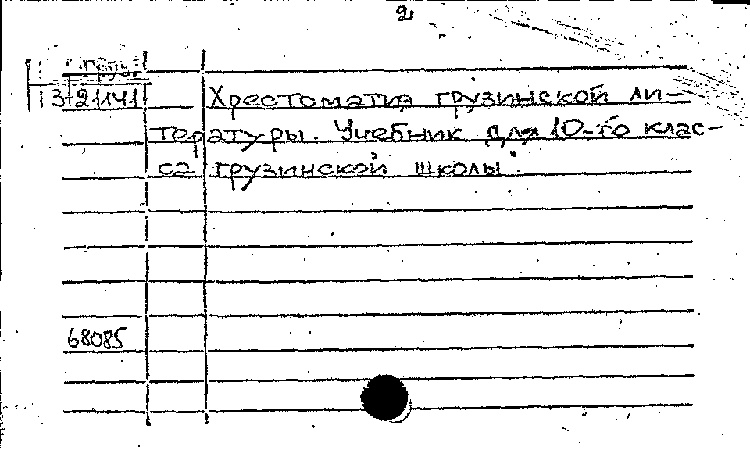 2
Груз.
3-21141
Хрестоматия грузинской ли-
тературы. Учебник для 10-го клас-
са грузинской школы.
68085